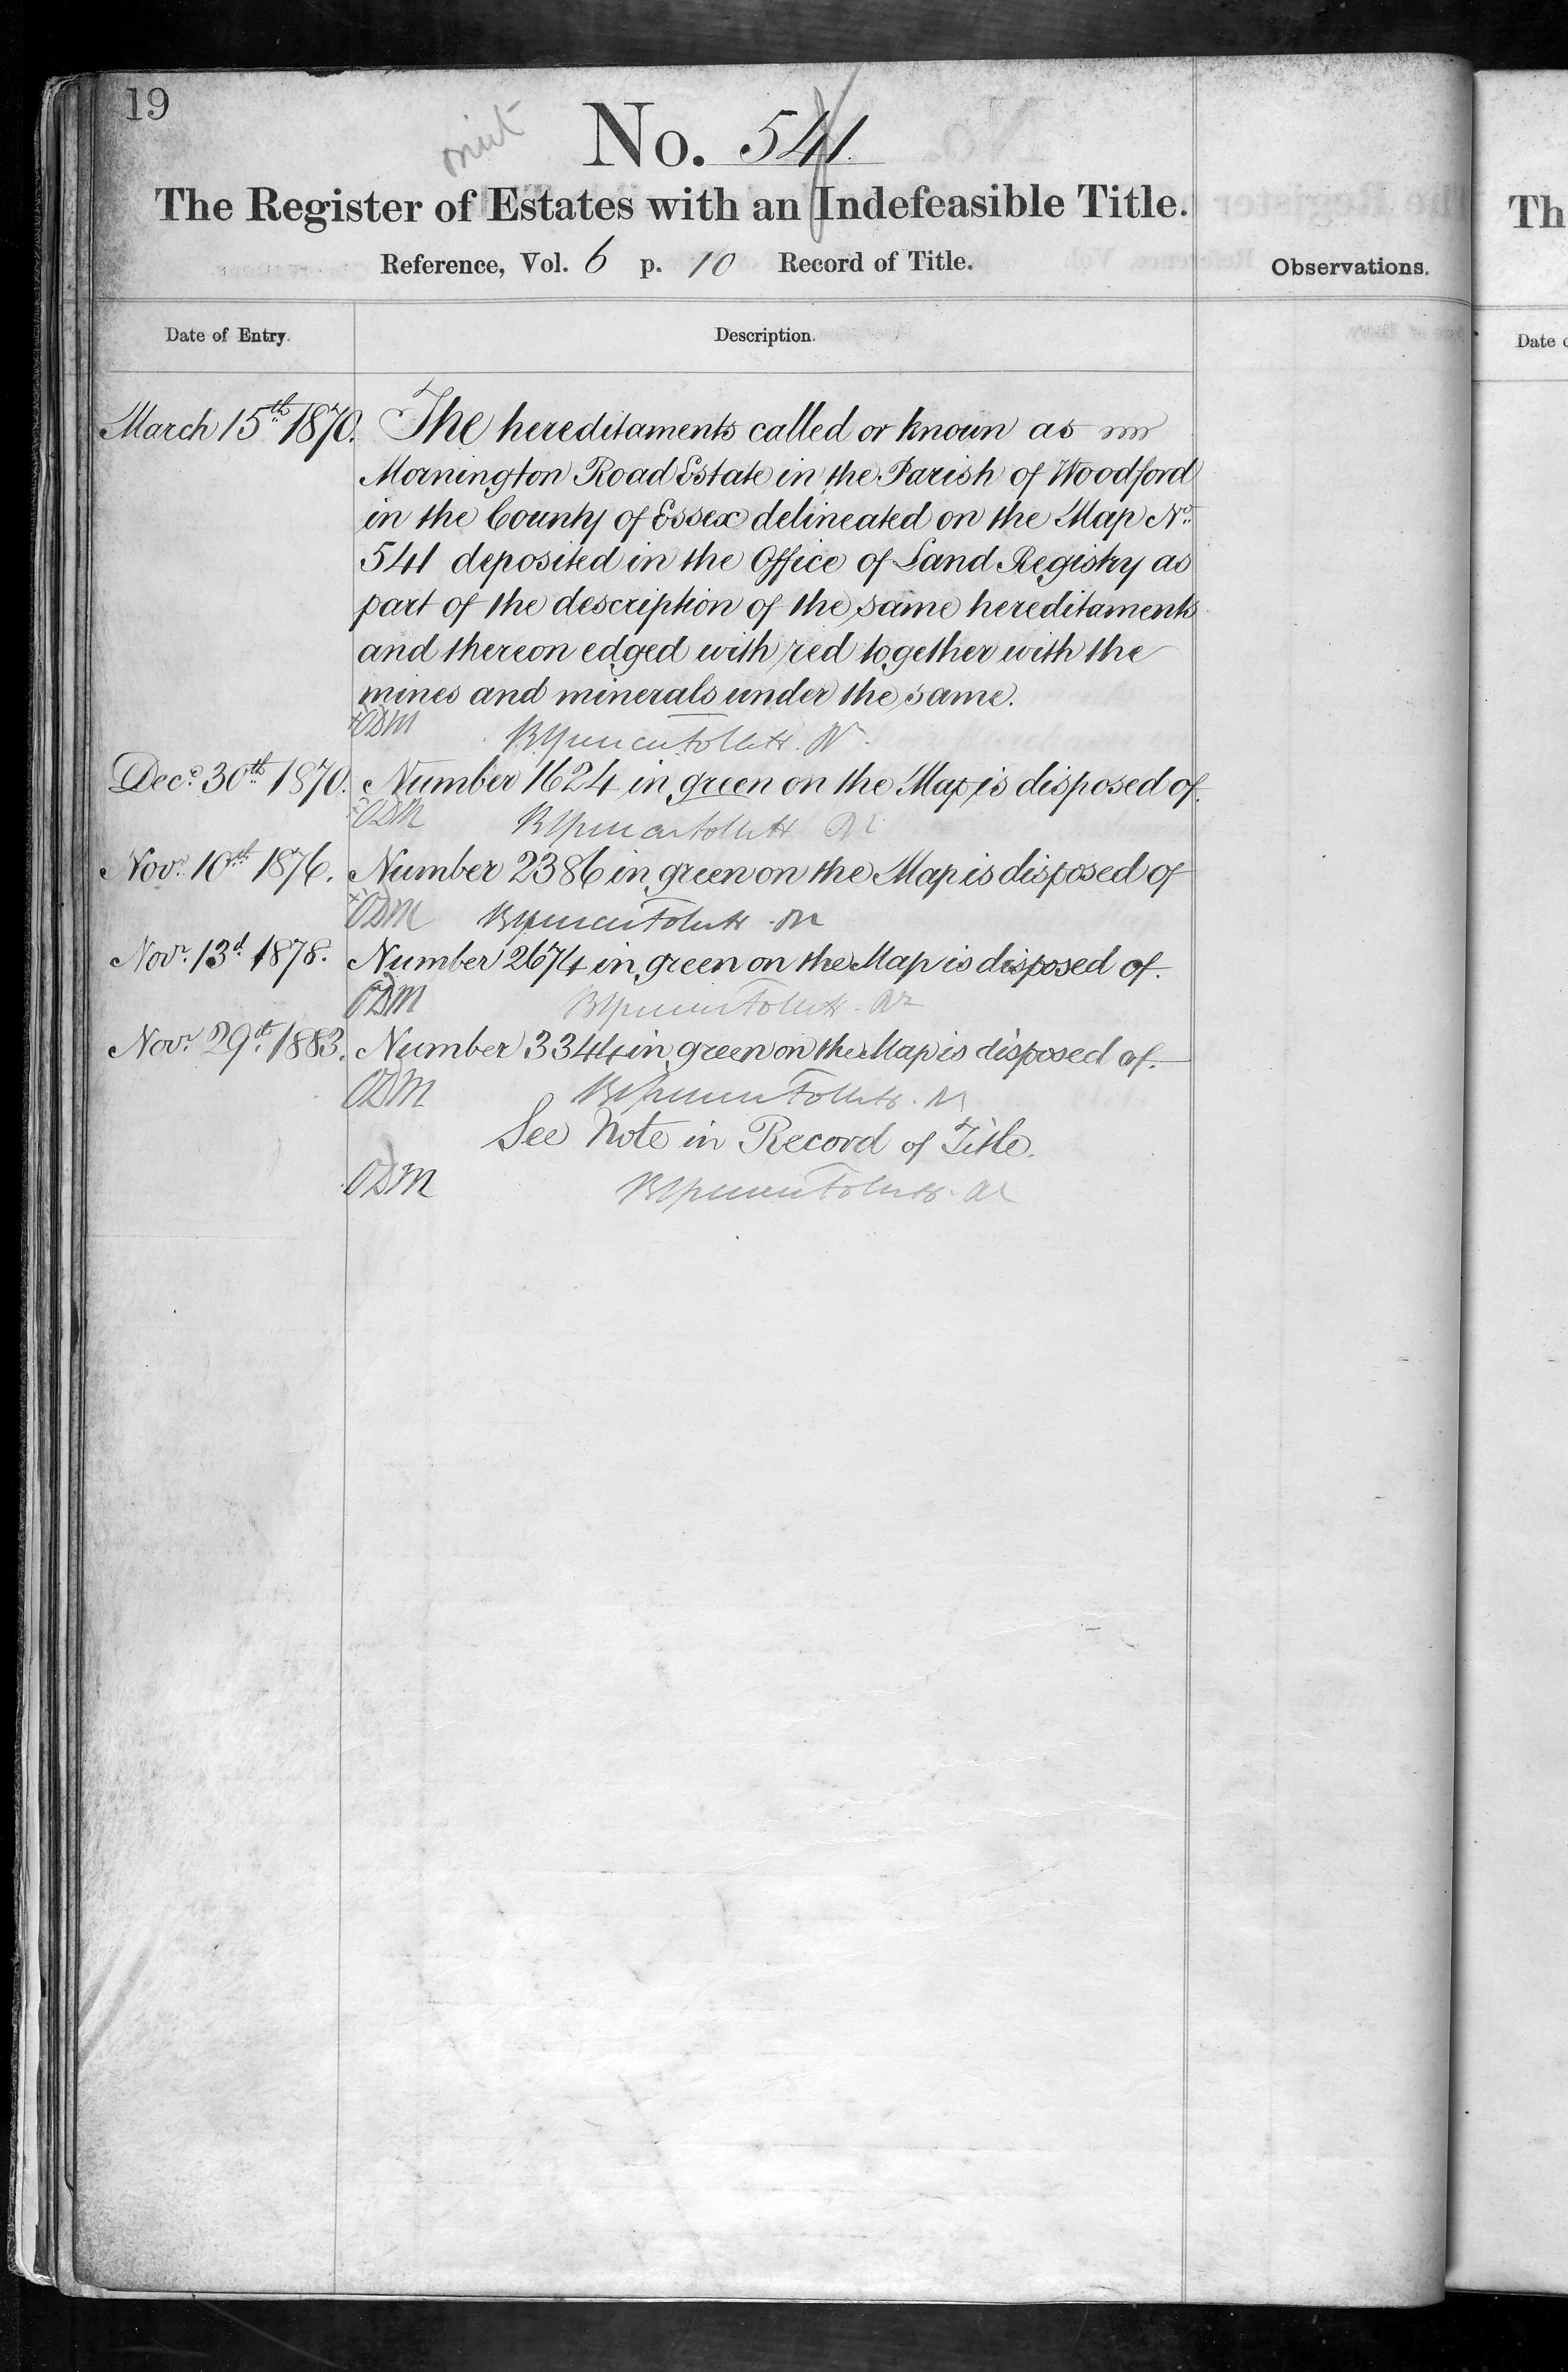 19
No. 541.
The Register of Estates with an Indefeasible Title.
Reference, Vol. 6 p. 10 Record of Title.
Observations.
Date of Entry.
Description.
March 15th 1870. The hereditaments called or known as
Mornington Road Estate in the Parish of Woodford
in the County of Essex delineated on the Map No.
541 deposited in the Office of Land Registry as
part of the description of the same hereditaments
and thereon edged with red together with the
mines and minerals under the same.
ODM
Decr. 30th 1870. Number 1624 in green on the Map is disposed of.
ODM
Novr. 10th 1876. Number 2386 in green on the Map is disposed of
ODM
Novr. 13d. 1878. Number 2674 in green on the Map is disposed of.
ODM
Novr. 29th. 1883. Number 3344 in green on the Map is disposed of.
ODM
See Note in Record of Title.
ODM
Th
Date o